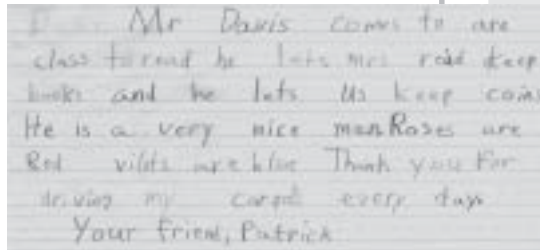 Mr Davis comes to are
class to read he lets mrs read keep
books and he lets us keep coins
He is a very nice man Roses are
Red vilots are blue Thank you For
driving my carpol every days
Your friend, Patrick